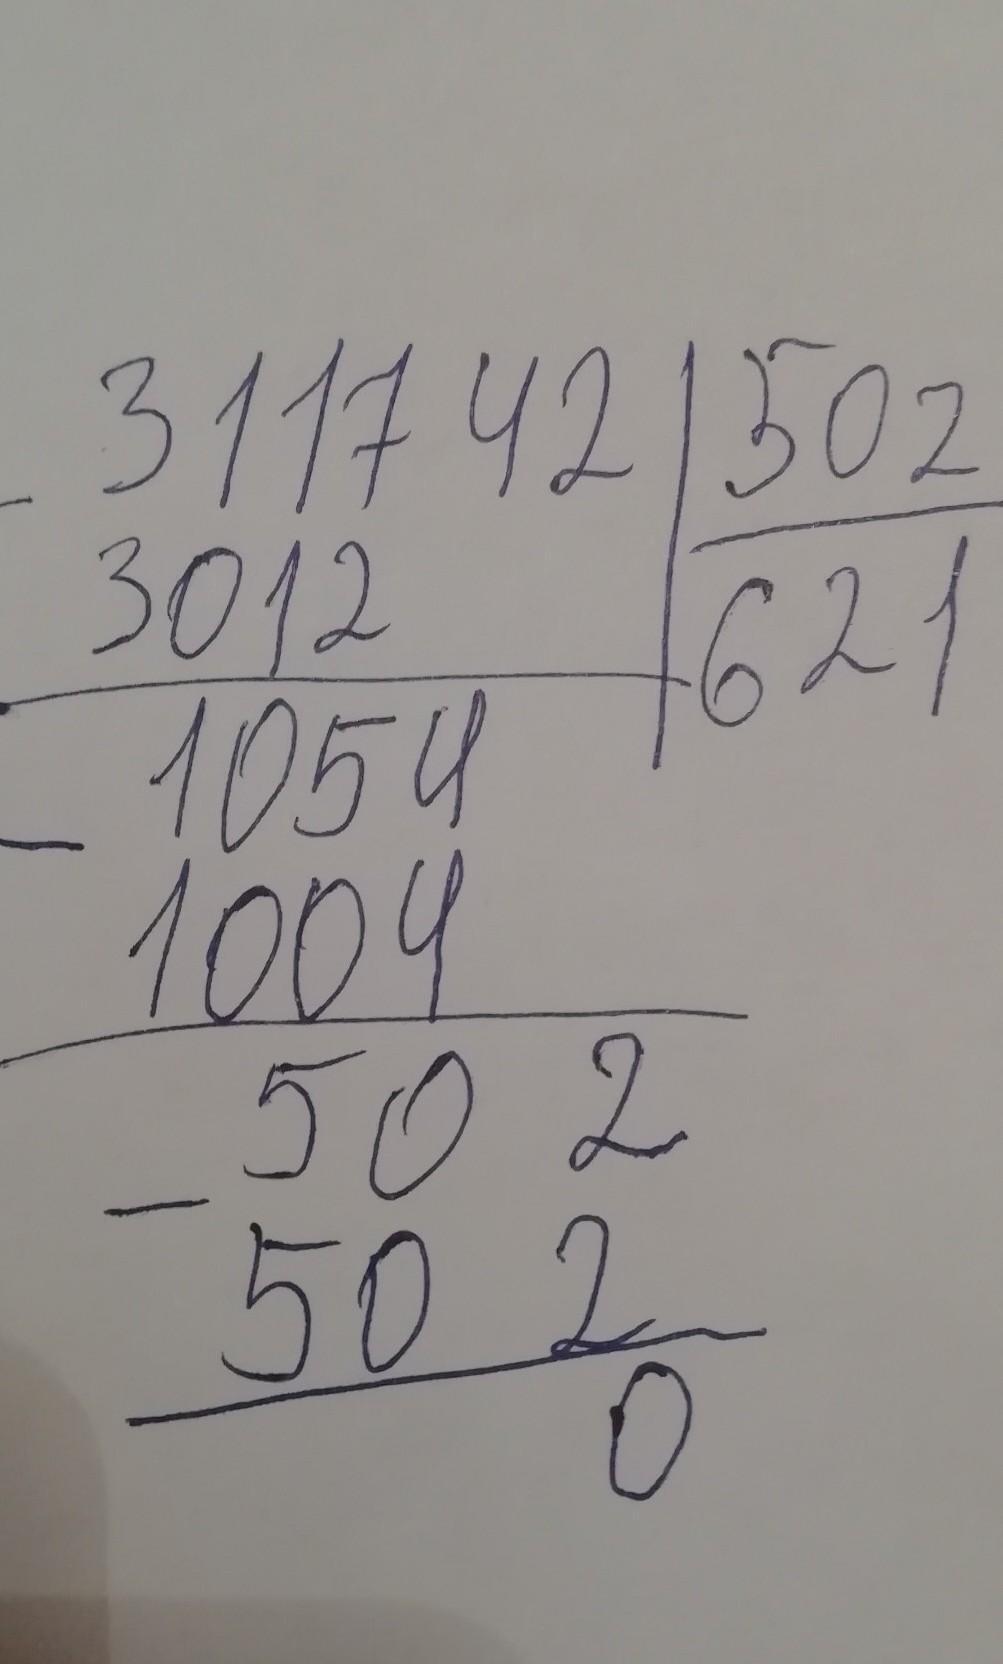 311742 502
- 3012 621
1054
- 1004
502
- 502
0